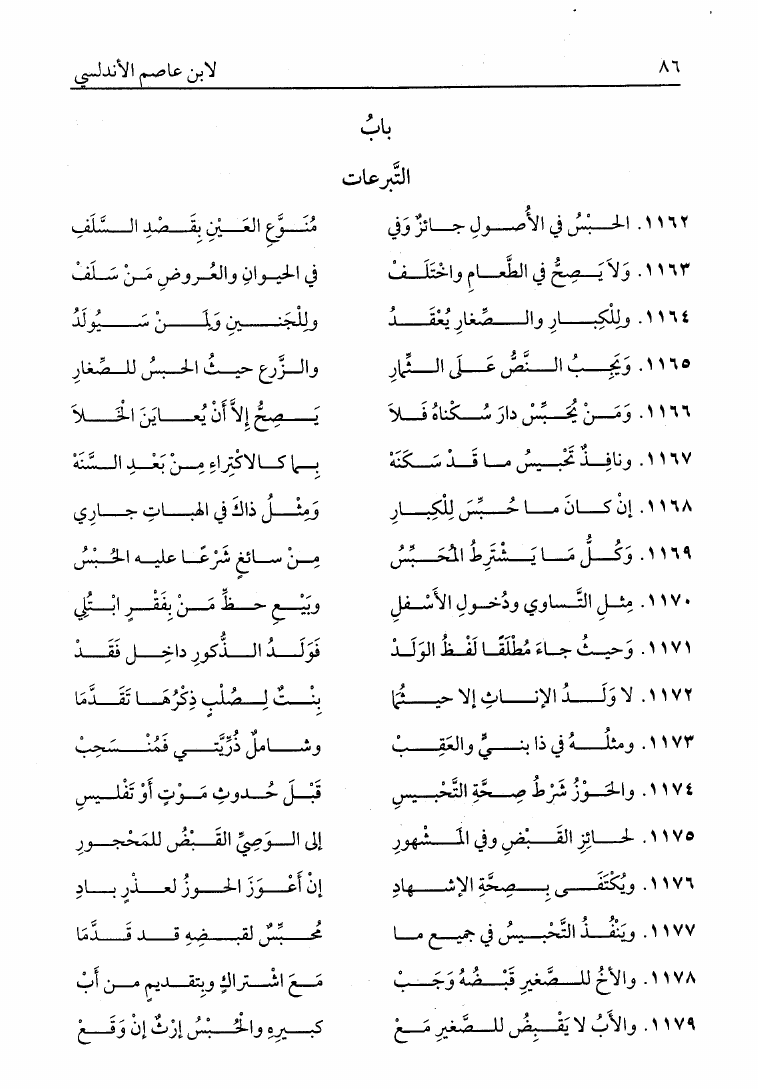 ٨٦ لابن عاصم الأندلسي
بابُ
التَّبرعات
١١٦٢. الحَبْسُ في الأُصولِ جائزٌ وَفي مُنَوَّعِ العَيْنِ بِقَصْدِ السَّلَفِ
١١٦٣. وَلاَ يَصِحُّ في الطَّعامِ واخْتَلَفْ في الحيوانِ والعُروضِ مَنْ سَلَفْ
١١٦٤. ولِلْكِبارِ والصِّغارِ يُعْقَدُ ولِلْجَنينِ ولمَنْ سَيُولَدُ
١١٦٥. وَيَجِبُ النَّصُّ عَلى الثِّمارِ والزَّرعِ حيثُ الحبسُ للصِّغارِ
١١٦٦. وَمَنْ يُحَبِّسْ دارَ سُكناهُ فَلاَ يَصِحُّ إلاَّ أنْ يُعايَنَ الخَلاَ
١١٦٧. ونافِذٌ تَحْبيسُ ما قَدْ سَكَنَهْ بِما كالاكْتِراءِ مِنْ بَعْدِ السَّنَهْ
١١٦٨. إنْ كانَ ما حُبِّسَ لِلْكِبارِ وَمِثْلُ ذاكَ في الهباتِ جاري
١١٦٩. وَكُلُّ مَا يَشْتَرِطُ المُحَبِّسُ مِنْ سائغٍ شَرْعًا عليه الحَبْسُ
١١٧٠. مِثلِ التَّساوي ودُخولِ الأسْفلِ وبَيْعِ حظِّ مَنْ بِفَقْرٍ ابْتُلِي
١١٧١. وَحيثُ جاءَ مُطْلَقًا لَفْظُ الوَلَدْ فَوَلَدُ الذُّكورِ داخِلٌ فَقَدْ
١١٧٢. لا وَلَدُ الإناثِ إلا حيثُما بِنْتٌ لِصُلْبٍ ذِكْرُهَا تَقَدَّمَا
١١٧٣. ومثلُهُ في ذا بنيَّ والعَقِبْ وشاملٌ ذُرِّيَّتي فَمُنْسَحِبْ
١١٧٤. والحَوْزُ شَرْطُ صِحَّةِ التَّحْبيسِ قَبْلَ حُدوثِ مَوْتٍ أوْ تَفْليسِ
١١٧٥. لحائزِ القَبْضِ وفي المشْهورِ إلى الوَصِيِّ القَبْضُ للمَحْجورِ
١١٧٦. ويُكْتَفَى بِصِحَّةِ الإشْهادِ إنْ أعْوَزَ الحوزُ لعذرٍ بادِ
١١٧٧. ويَنْفُذُ التَّحْبيسُ في جميعِ ما مُحَبِّسٌ لقبضِهِ قد قَدَّمَا
١١٧٨. والأخُ للصَّغيرِ قَبْضُهُ وَجَبْ مَعَ اشْتراكٍ وبتقديمٍ من أبْ
١١٧٩. والأبُ لا يَقْبِضُ للصَّغيرِ مَعْ كبيرِهِ والحُبْسُ إرْثٌ إنْ وَقَعْ